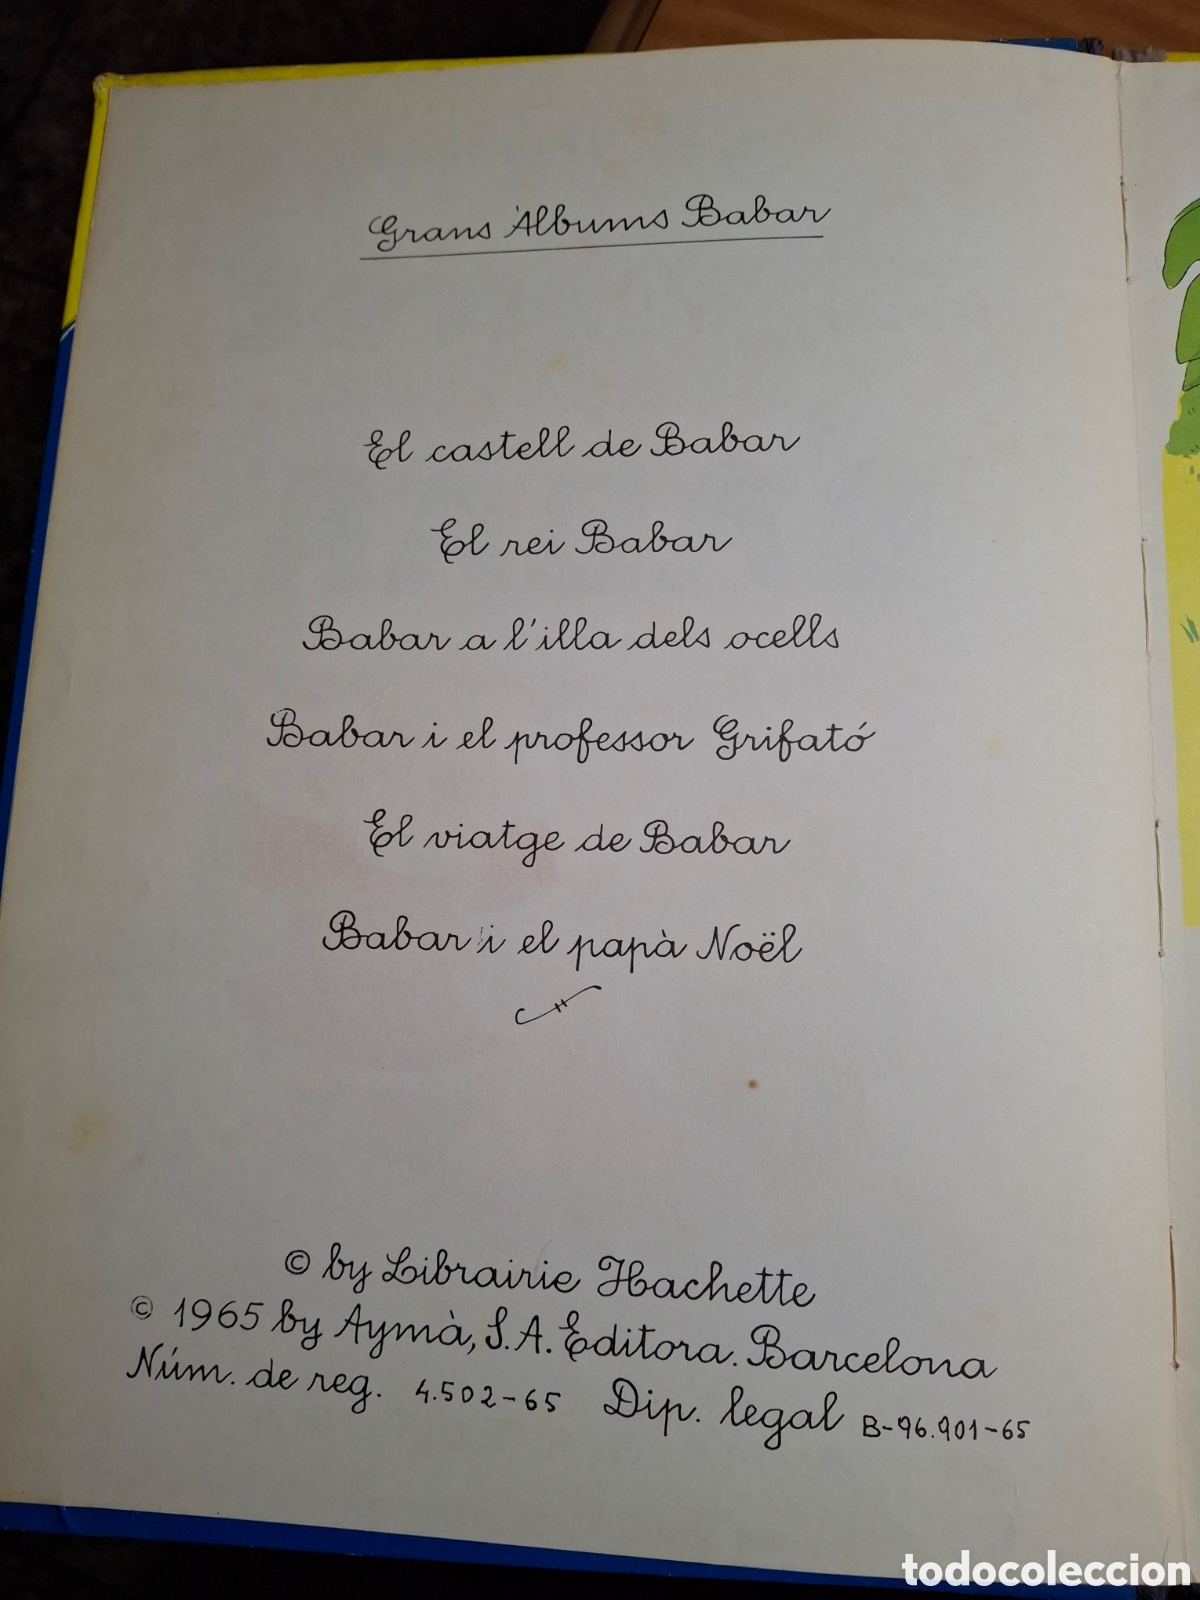 Grans Àlbums Babar
El castell de Babar
El rei Babar
Babar a l'illa dels ocells
Babar i el professor Grifató
El viatge de Babar
Babar i el papà Noël
© by Librairie Hachette
© 1965 by Aymà, S.A. Editora. Barcelona
Núm. de reg. 4.502-65 Dip. legal B-96.901-65
todocoleccion